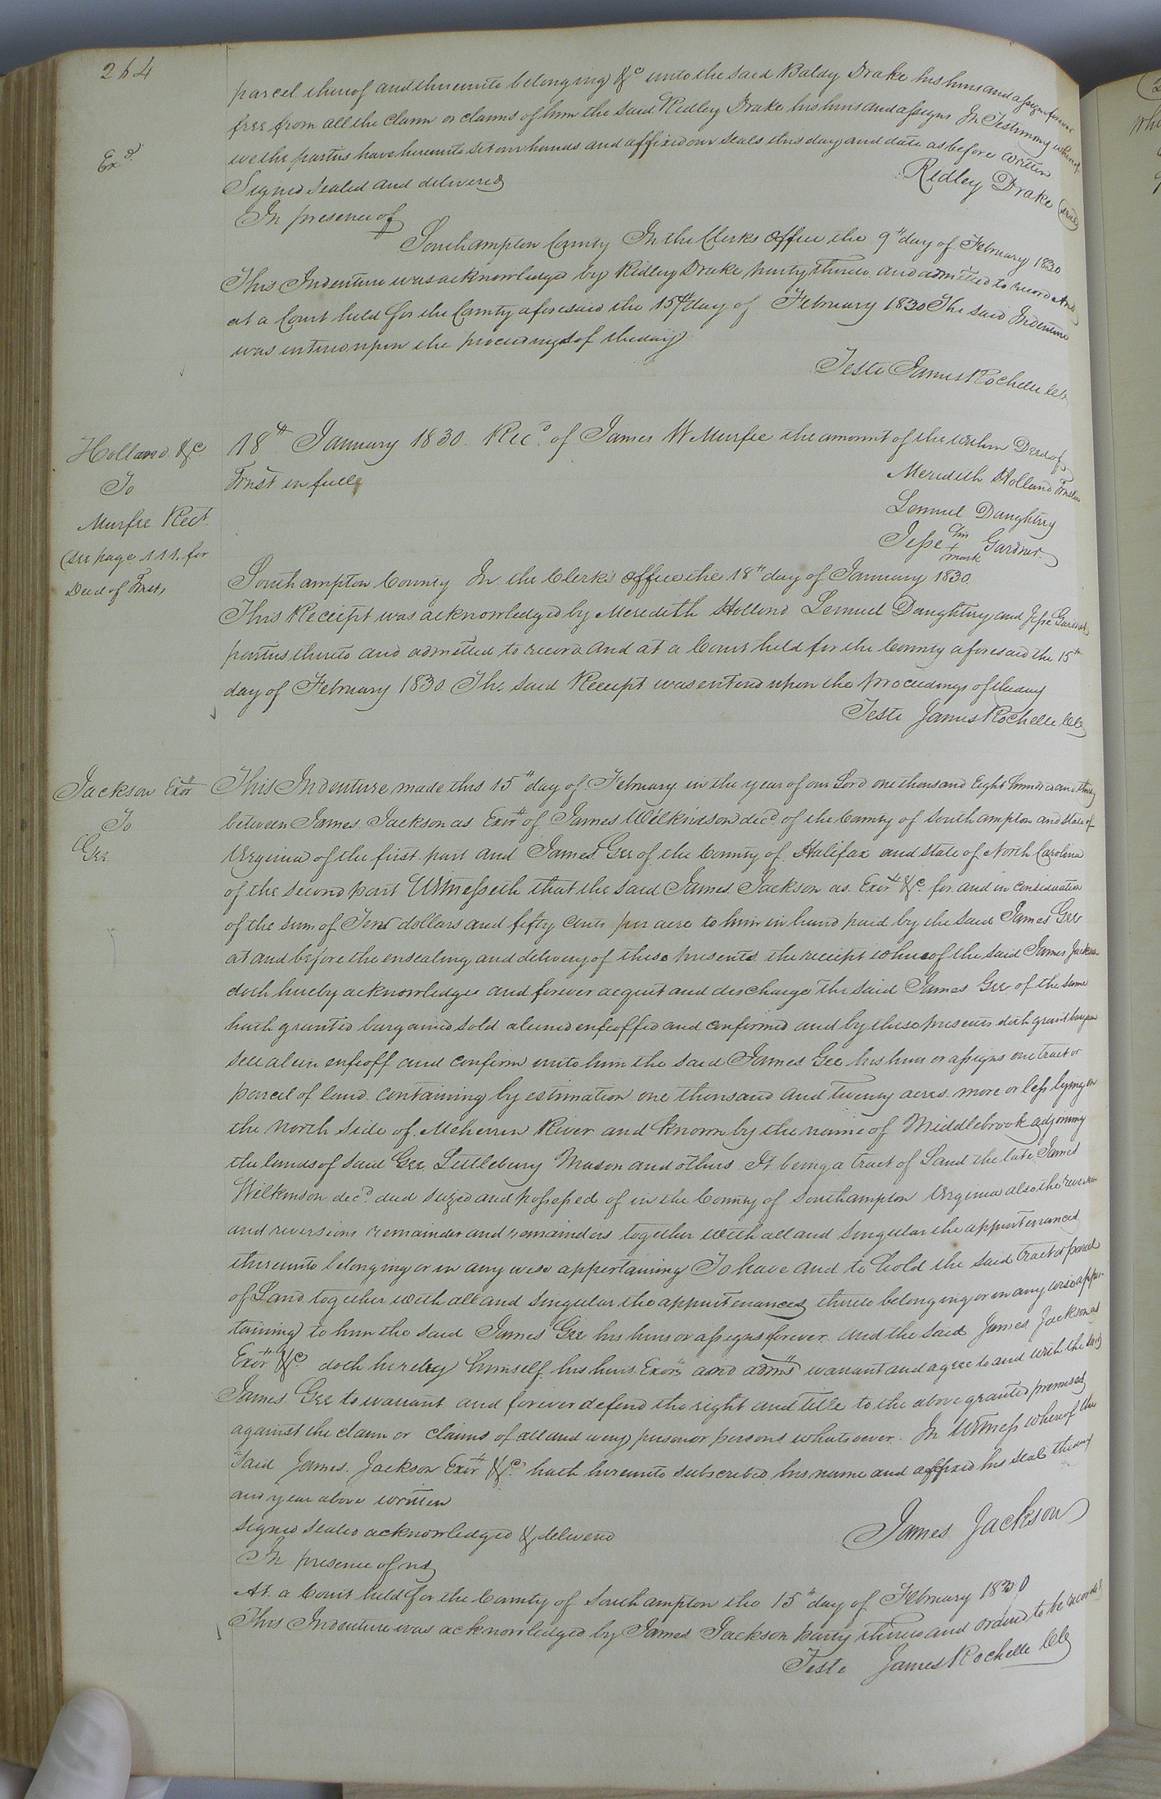 264
parcel thereof and thereunto belonging &c unto the said Balay Drake his heirs and assigns forever
free from all the claim or claims of him the said Ridley Drake his heirs and assigns In Testimony whereof
we the parties have hereunto set our hands and affixed our seals this day and date as before written
Exd
Signed Sealed and delivered
Ridley Drake (seal)
In presence of
Southampton County In the Clerks Office the 9th day of February 1830
This Indenture was acknowledged by Ridley Drake party thereto and admitted to record And
at a Court held for the County aforesaid the 15th day of February 1830 The said Indenture
was entered upon the proceedings of the day
Teste James Rochelle Clk
Holland &c
To
Murfee Rect
(see page 111 for
Deed of Trust)
18th January 1830. Recd. of James W Murfee the amount of the within Deed of
Trust in full
Meredith Holland Trustee
Lemuel Daughtry
Jesse his + mark Gardner
Southampton County In the Clerks office the 18th day of January 1830
This Receipt was acknowledged by Meredith Holland Lemuel Daughtry and Jesse Gardner
parties thereto and admitted to record and at a Court held for the County aforesaid the 15th
day of February 1830 The said Receipt was entered upon the Proceedings of the day
Teste James Rochelle Clk
Jackson Exor
To
Gee
This Indenture made this 15th day of February in the year of our Lord one thousand Eight hundred and thirty
between James Jackson as Exor of James Wilkinson decd of the County of Southampton and State of
Virginia of the first part and James Gee of the County of Halifax and state of North Carolina
of the second part Witnesseth that the said James Jackson as Exor &c. for and in consideration
of the sum of dollars and fifty cents per acre to him in hand paid by the said James Gee
at and before the ensealing and delivery of these presents the receipt whereof the said James Jackson
doth hereby acknowledge and forever acquit and discharge the said James Gee of the same
hath granted bargained sold aliened enfeoffed and confirmed and by these presents doth grant bargain
sell alien enfeoff and confirm unto him the said James Gee his heirs or assigns one tract or
parcel of land containing by estimation one thousand and twenty acres more or less lying on
the North Side of Meherrin River and known by the name of Middlebrook adjoining
the lands of said Gee, Littlebury Mason and others It being a tract of Land the late James
Wilkinson decd died seized and possessed of in the County of Southampton Virginia also the reversion
and reversions remainder and remainders together with all and singular the appurtenances
thereunto belonging or in any wise appertaining To have and to hold the said tract or parcel
of Land together with all and singular the appurtenances thereto belonging or in any wise apper-
taining to him the said James Gee his heirs or assigns forever and the said James Jackson as
Exor &c. doth hereby himself his heirs Exors and adms warrant and agree to and with the said
James Gee to warrant and forever defend the right and title to the above granted premises
against the claim or claims of all and every person or persons whatsoever. In Witness whereof the
said James Jackson Exor &c. hath hereunto subscribed his name and affixed his seal the day
and year above written
Signed sealed acknowledged & delivered
James Jackson
In presence of us
At a Court held for the County of Southampton the 15th day of February 1830
This Indenture was acknowledged by James Jackson party thereto and ordered to be recorded
Teste James Rochelle Clk